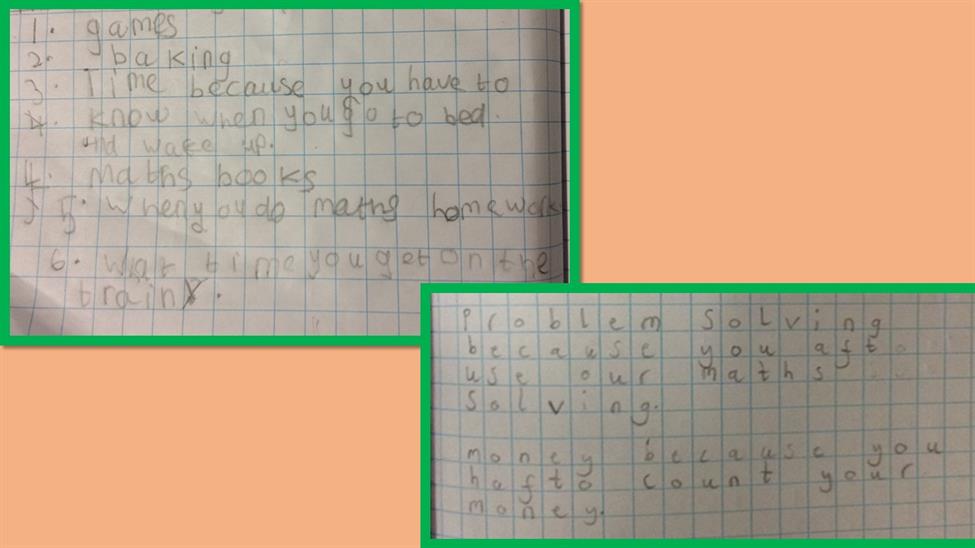 1. games
2. baking
3. Time because you have to
4. know when you go to bed.
and wake up.
4. maths books
5. when you do maths homework
6. What time you get on the
train.
Problem solving
because you aft
use our maths
solving.
money because you
hafto count your
money.